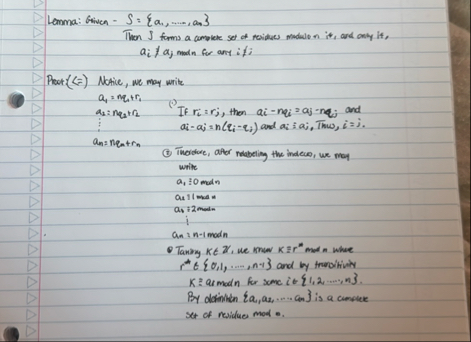 Lemma: Given - S = {a₁, ....., aₙ}
Then S forms a complete set of residues modulo n if, and only if,
aᵢ ≢ aⱼ mod n for any i ≠ j
Proof: (<=) Notice, we may write
a₁ = nq₁ + r₁
a₂ = nq₂ + r₂
⋮
aₙ = nqₙ + rₙ
(1) If rᵢ = rⱼ, then aᵢ - nqᵢ = aⱼ - nqⱼ and
aᵢ - aⱼ = n(qᵢ - qⱼ) and aᵢ ≡ aⱼ, Thus, i = j.
(2) Therefore, after relabeling the indexes, we may
write
a₁ ≡ 0 mod n
a₂ ≡ 1 mod n
a₃ ≡ 2 mod n
⋮
aₙ ≡ n-1 mod n
Taking K ∈ ℤ, we know K ≡ r* mod n where
r* ∈ {0, 1, ....., n-1} and by transitivity
K ≡ aᵢ mod n for some i ∈ {1, 2, ....., n}.
By definition {a₁, a₂, ..... aₙ} is a complete
set of residues mod n.